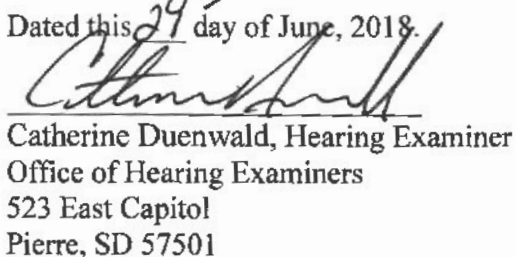 Dated this 29 day of June, 2018.
Catherine Duenwald, Hearing Examiner
Office of Hearing Examiners
523 East Capitol
Pierre, SD 57501